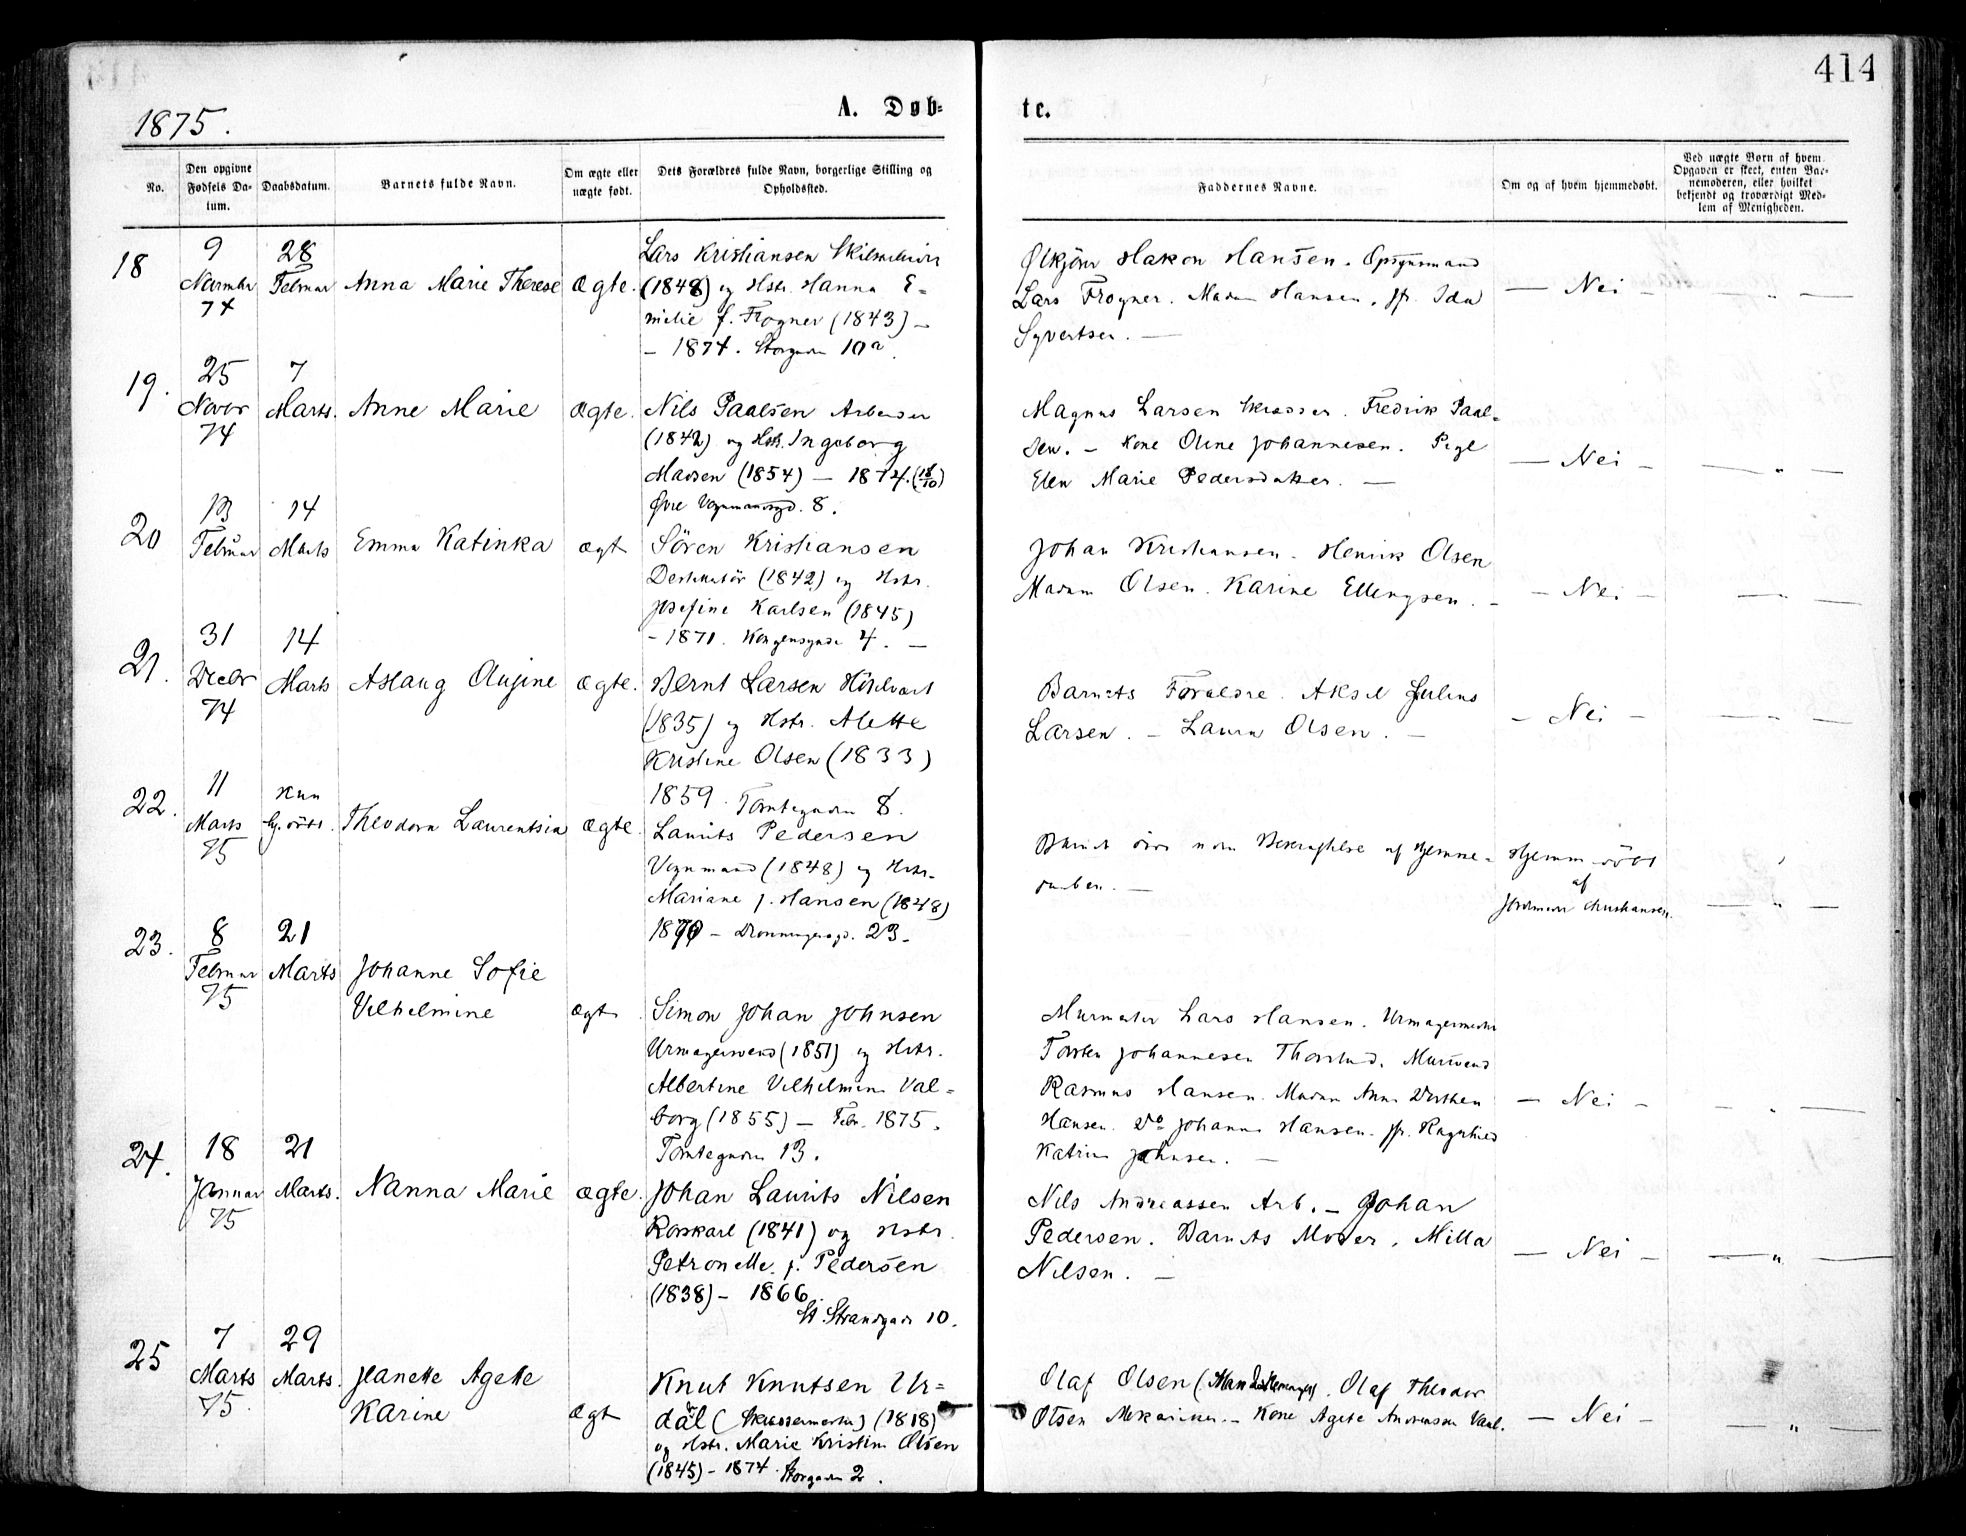 414
1875.
A. Døb-
te.
No.
Den opgivne Fødsels Datum.
Daabsdatum.
Barnets fulde Navn.
Om ægte eller uægte født.
Dets Forældres fulde Navn, borgerlige Stilling og Opholdssted.
Faddernes Navne.
Om og af hvem hjemmedøbt.
Ved uægte Børn af hvem Opgaven er skeet, enten Barnemoderen, eller hvilket bekjendt og troværdigt Medlem af Menigheden.
18
9
28
74
Februar
Anna Marie Therese
ægte.
Lars Kristiansen
(1848) og Hstr. Hanna E-
milie f. Frogner (1843) –
– 1874. Storgaden 10a.
Hakon Hansen. Opsynsmand
Lars Frogner. Madam Hansen. Ida
Syvertsen. —
— Nei —
— „ —
19.
25
Novbr
74
7
Marts.
Anne Marie
ægte.
Nils Paalsen Arbeider
(1842) og Hstr. Ingeborg
Madsen (1854) — 1874. (18/10)
Øvre Vognmandsgd. 8.
Magnus Larsen Skrædder. Fredrik Paal-
sen. – Kone Oline Johannesen. Pige
Elen Marie Pedersdatter. —
— Nei —
— „ —
20
13
Februar
14
Marts
Emma Katinka
ægt
Sören Kristiansen
Destillatör (1842) og Hstr.
Josefine Karlsen (1845)
– 1871. Kongensgade 4. —
Johan Kristiansen. Henrik Olsen
Madam Olsen. Karine Ellengsen. –
– Nei –
— „ —
21.
31
Decbr
74
14
Marts
Aslaug Aujine
ægte.
Bernt Larsen
(1835) og Hstr. Alette
Kristine Olsen (1833)
1859. Tomtegaden 8.
Barnets Forældre. Aksel Julius
Larsen. – Laura Olsen. —
– Nei –
— „ —
22.
11
Marts
75
Kun
hj. döbt.
Theodora Laurentsia
ægte.
Laurits Pedersen
Vognmand (1848) og Hstr.
Mariane f. Hansen (1848)
1870 – Dronningensgd. 23.
Barnet döde uden Bekræftelse af Hjemme-
daaben. —
Hjemmedöbt
af
Christiansen.
— „ —
23.
8
Februar
75
21
Marts
Johanne Sofie
Vilhelmine
ægt
Simon Johan Johnsen
Urmagersvend (1851) og Hstr.
Albertine Vilhelmine Val-
borg (1855) — Febr. 1875.
Tomtegaden 13.
Murmester Lars Hansen. Urmagermester
Torsten Johannesen Murisvend
Rasmus Hansen. Madam Anne Dorthea
Hansen. Do Johanne Hansen. Jfr. Ragnhild
Katrine Johnsen. —
— Nei –
– „ —
24.
18
Januar
75
21
Marts.
Nanna Marie
ægte.
Johan Laurits Nilsen
Rorskarl (1841) og Hstr.
Petronelle f. Pedersen
(1838) – 1866.
St. Strandgade 10.
Nils Andreassen Arb. – Johan
Pedersen. Barnets Moder. Milla
Nilsen. —
— Nei –
— „ —
25
7
Marts
75.
29
Marts.
Jeanette Agette
Karine
ægt
Knut Knutsen Ur-
dal (Skræddermester) (1818)
og Hstr. Marie Kristine Olsen
(1845) – 1874. Storgaden 2.
Olaf Olsen Olaf Theodor
Olsen Mekaniker. – Kone Agete Andersen
— Nei –
— „ —